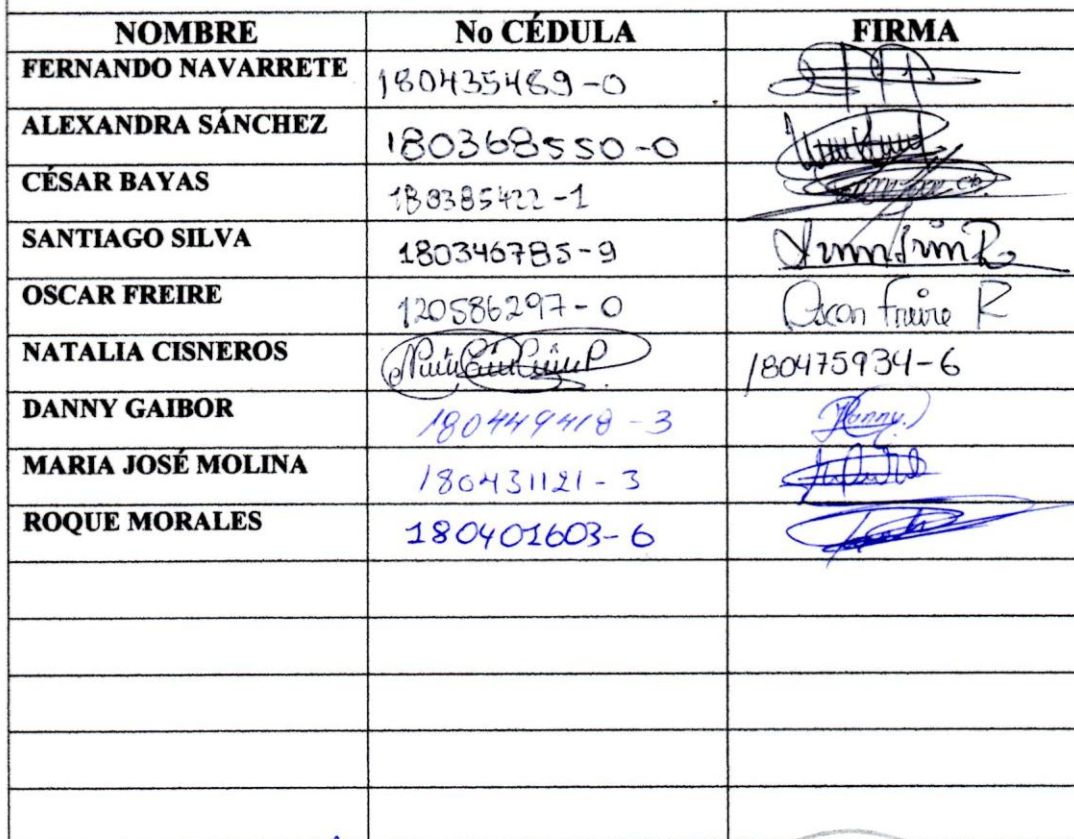 NOMBRE No CÉDULA FIRMA
FERNANDO NAVARRETE 180435489-0
ALEXANDRA SÁNCHEZ 180368550-0
CÉSAR BAYAS 180385422-1
SANTIAGO SILVA 180346785-9
OSCAR FREIRE 120586297-0 Oscar Freire R
NATALIA CISNEROS 180475934-6
DANNY GAIBOR 180449418-3 Danny
MARIA JOSÉ MOLINA 180431121-3
ROQUE MORALES 180401603-6